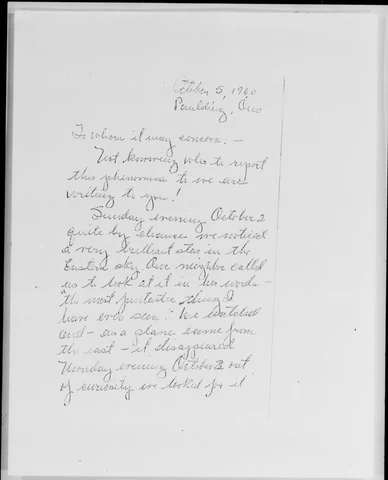 October 5, 1960
Paulding, Ohio
To whom it may concern: -
Not knowing who to report
this phenomina to we are
writing to you!
Sunday evening October 2
quite by chance we noticed
a very brilliant star in the
Eastern sky. Our neighbor called
us to look at it in her words -
"the most fantastic thing I
have ever seen." We watched
and - as a plane came from
the east - it disappeared
Monday evening October 3 out
of curiosity we looked for it